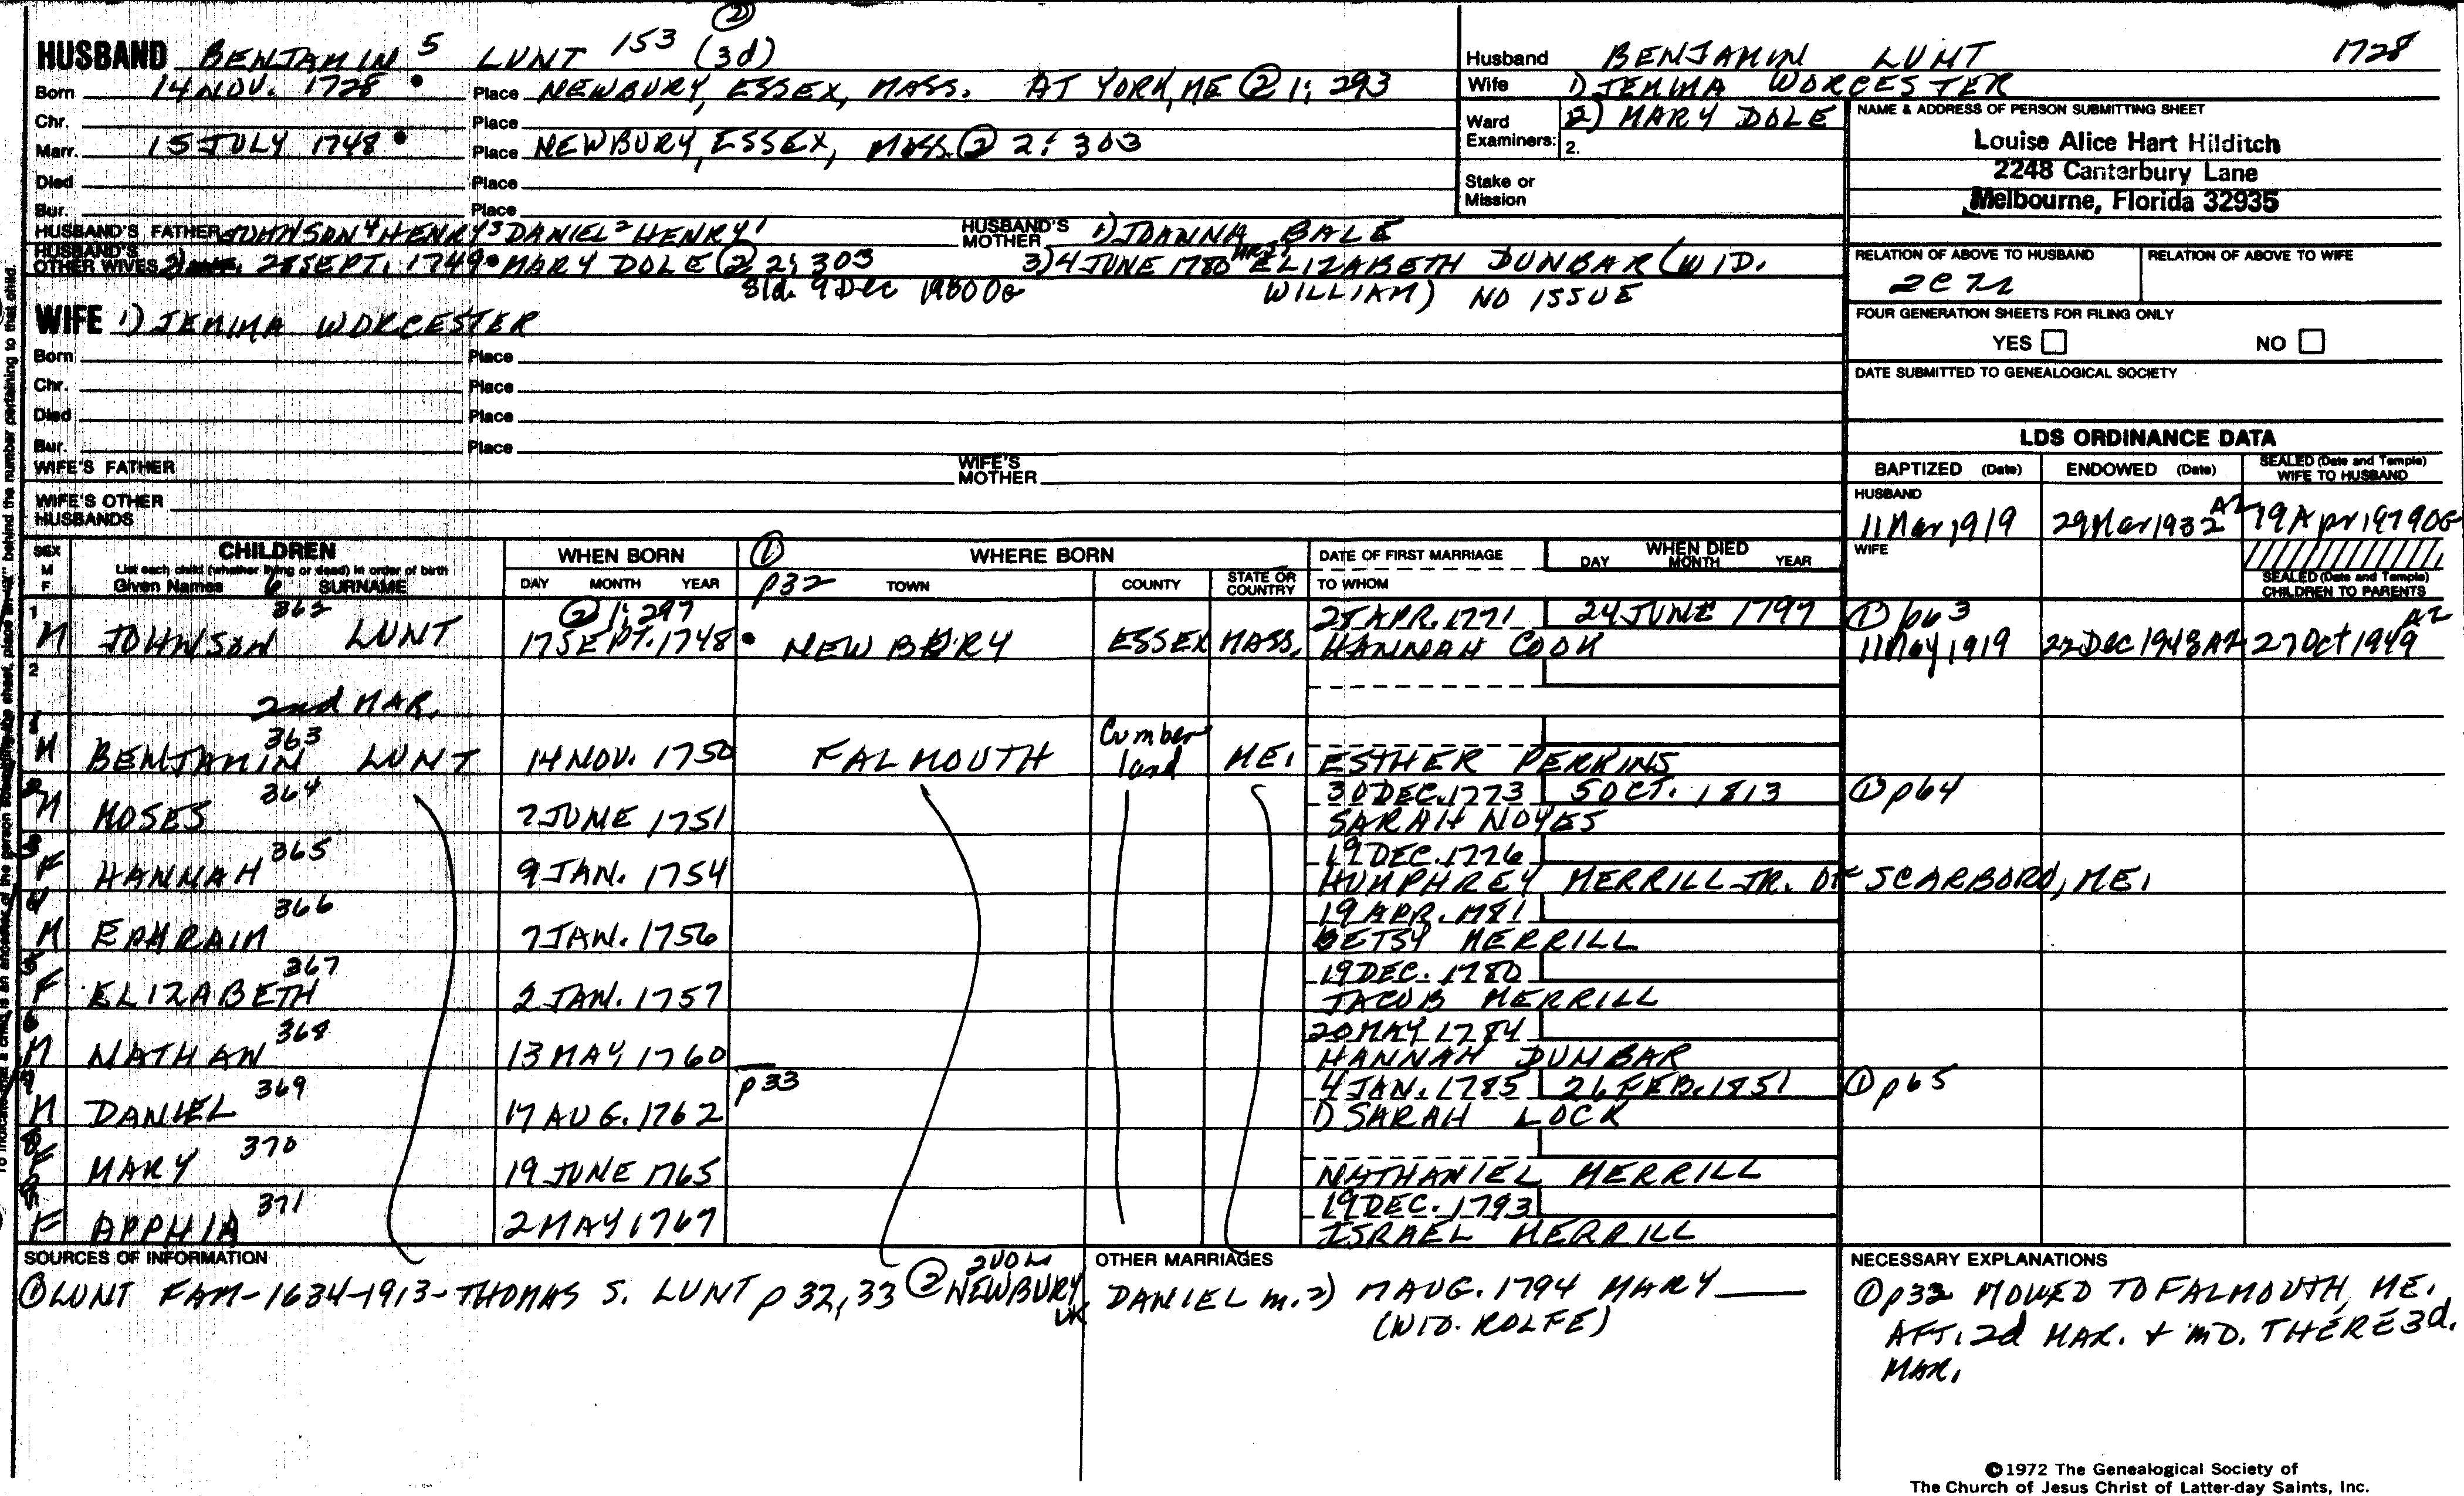 ②
HUSBAND BENJAMIN 5 LUNT 153 (3d)
Born 14 NOV. 1728 • Place NEWBURY, ESSEX, MASS. AT YORK, ME ② 1; 293
Chr. Place
Marr. 15 JULY 1748 • Place NEWBURY, ESSEX, MASS. ② 2: 303
Died Place
Bur. Place
HUSBAND'S FATHER JOHNSON 4 HENRY 3 DANIEL 2 HENRY 1 HUSBAND'S MOTHER 1) JOANNA BALE
HUSBAND'S OTHER WIVES 2) 28 SEPT. 1749 • MARY DOLE ② 2; 303 3) 4 JUNE 1780 MRS. ELIZABETH DUNBAR (WID.
Sld. 9 Dec 1980 OG WILLIAM) NO ISSUE
WIFE 1) JEMIMA WORCESTER
Born Place
Chr. Place
Died Place
Bur. Place
WIFE'S FATHER WIFE'S MOTHER
WIFE'S OTHER HUSBANDS
Husband BENJAMIN LUNT 1728
Wife 1) JEMIMA WORCESTER
Ward 2) MARY DOLE
Examiners: 2.
Stake or
Mission
NAME & ADDRESS OF PERSON SUBMITTING SHEET
Louise Alice Hart Hilditch
2248 Canterbury Lane
Melbourne, Florida 32935
RELATION OF ABOVE TO HUSBAND RELATION OF ABOVE TO WIFE
FOUR GENERATION SHEETS FOR FILING ONLY
YES NO
DATE SUBMITTED TO GENEALOGICAL SOCIETY
LDS ORDINANCE DATA
BAPTIZED (Date) ENDOWED (Date) SEALED (Date and Temple) WIFE TO HUSBAND
HUSBAND
11 Mar 1919 29 Mar 1932 AZ 19 Apr 1979 OG
WIFE
SEALED (Date and Temple) CHILDREN TO PARENTS
SEX M F CHILDREN WHEN BORN ① WHERE BORN DATE OF FIRST MARRIAGE WHEN DIED
List each child (whether living or dead) in order of birth DAY MONTH YEAR
Given Names 6 SURNAME DAY MONTH YEAR p32 TOWN COUNTY STATE OR COUNTRY TO WHOM
1 362 ② 1; 297 28 APR. 1771 24 JUNE 1797 ① p63 AZ
M JOHNSON LUNT 17 SEPT. 1748 • NEWBURY ESSEX MASS. HANNAH COOK 11 May 1919 22 Dec 1948 AZ 27 Oct 1949
2
2nd MAR.
1 363
M BENJAMIN LUNT 14 NOV. 1750 FALMOUTH Cumberland ME. ESTHER PERKINS
2 364 30 DEC. 1773 5 OCT. 1813 ① p64
M MOSES 7 JUNE 1751 SARAH NOYES
3 365 19 DEC. 1776
F HANNAH 9 JAN. 1754 HUMPHREY MERRILL JR. OF SCARBORO, ME.
4 366 19 APR. 1781
M EPHRAIM 7 JAN. 1756 BETSY MERRILL
5 367 19 DEC. 1780
F ELIZABETH 2 JAN. 1757 JACOB MERRILL
6 368 20 MAY 1784
M NATHAN 13 MAY 1760 HANNAH DUMBAR
7 369 p33 4 JAN. 1785 26 FEB. 1851 ① p65
M DANIEL 17 AUG. 1762 1) SARAH LOCK
8 370
F MARY 19 JUNE 1765 NATHANIEL MERRILL
9 371 19 DEC. 1793
F APPHIA 2 MAY 1767 ISRAEL MERRILL
SOURCES OF INFORMATION
① LUNT FAM-1634-1913-THOMAS S. LUNT p 32, 33 ② NEWBURY VR
OTHER MARRIAGES
DANIEL m. 2) 7 AUG. 1794 MARY
(WID. ROLFE)
NECESSARY EXPLANATIONS
① p32 MOVED TO FALMOUTH, ME.
AFT. 2d MAR. + MD. THERE 3d.
MAR.
©1972 The Genealogical Society of
The Church of Jesus Christ of Latter-day Saints, Inc.